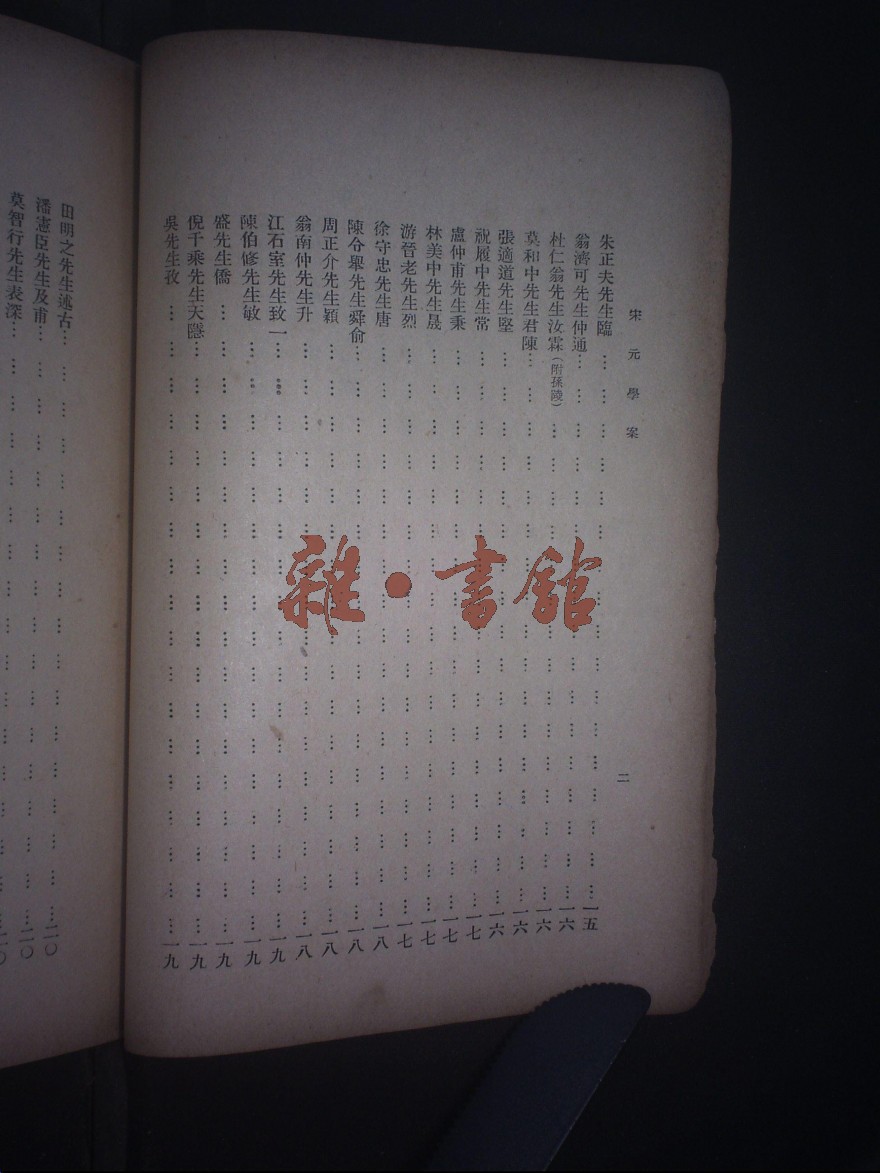 宋元學案
二
朱正夫先生臨……一五
翁濟可先生仲通……一六
杜仁翁先生汝霖(附孫陵)……一六
莫和中先生君陳……一六
張適道先生堅……一六
祝履中先生常……一七
盧仲甫先生秉……一七
林美中先生晟……一七
游晉老先生烈……一七
徐守忠先生唐……一八
陳令舉先生舜俞……一八
周正介先生穎……一八
翁南仲先生升……一八
江石室先生致一……一九
陳伯修先生敏……一九
盛先生僑……一九
倪千乘先生天隱……一九
吳先生孜……一九
田明之先生述古……二〇
潘憲臣先生及甫……二〇
莫智行先生表深……二〇
雜·書館